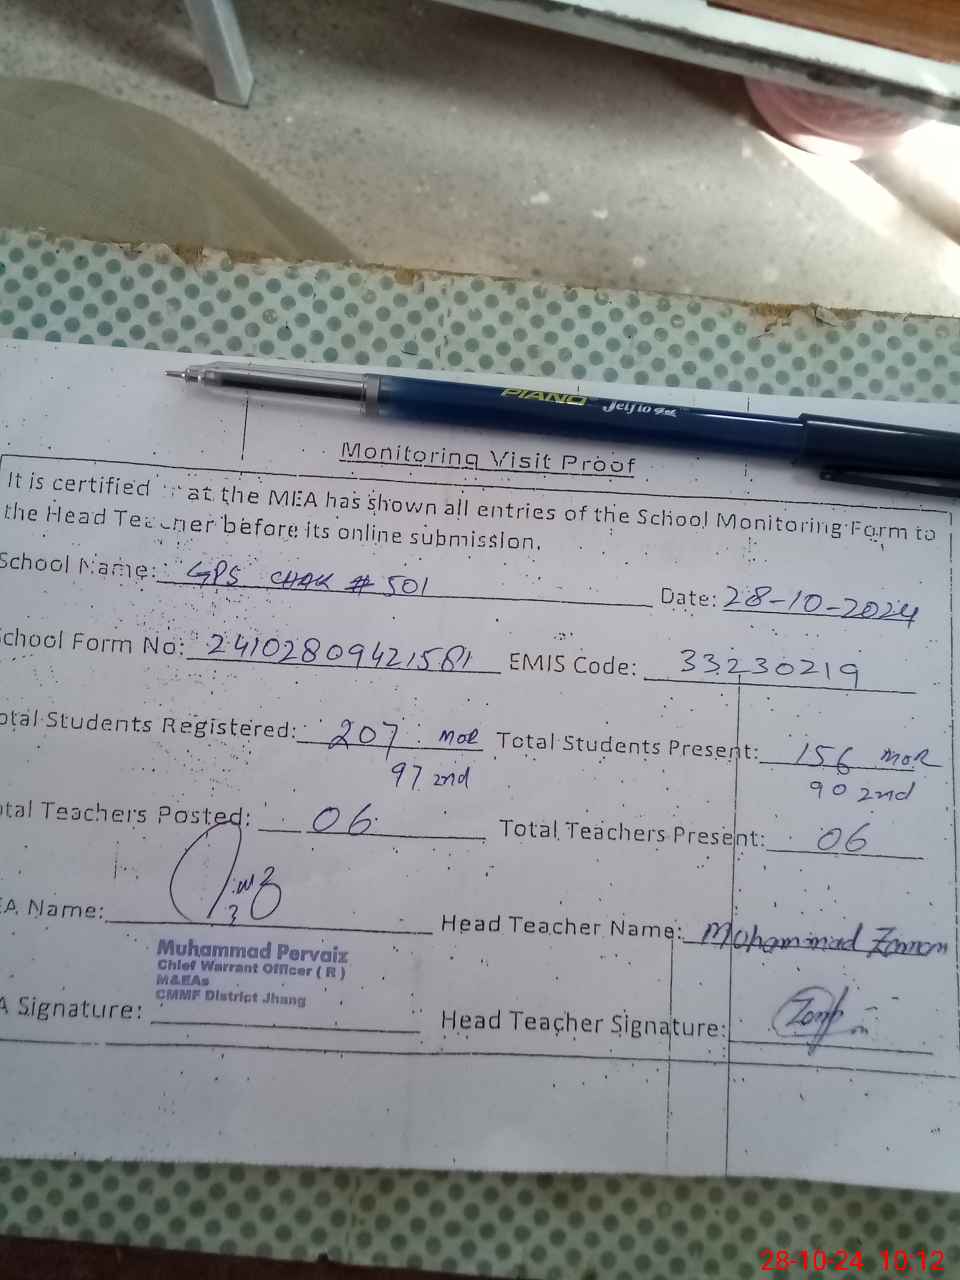 PIANO Jelflo Gel
Monitoring Visit Proof
It is certified at the MEA has shown all entries of the School Monitoring Form to
the Head Teacher before its online submission.
School Name: GPS CHAK # 501 Date: 28-10-2024
School Form No: 24102809421581 EMIS Code: 33230219
otal Students Registered: 207 MOR Total Students Present: 156 MOR
97 2nd 90 2nd
otal Teachers Posted: 06 Total Teachers Present: 06
EA Name: Head Teacher Name: Mohammad Zaman
Muhammad Pervaiz
Chief Warrant Officer ( R )
M&EAs
CMMF District Jhang
A Signature: Head Teacher Signature:
28-10-24 10:12